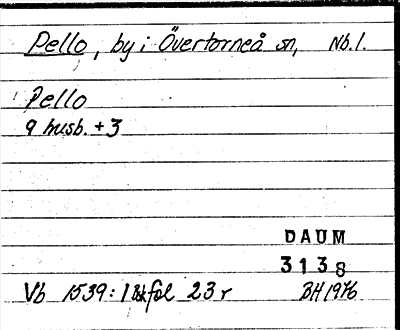 Pello, by i Övertorneå sn, Nb.l.
Pello
9 husb. + 3
DAUM
3138
Vb 1539: 1 Bskfol 23 r BH 1976